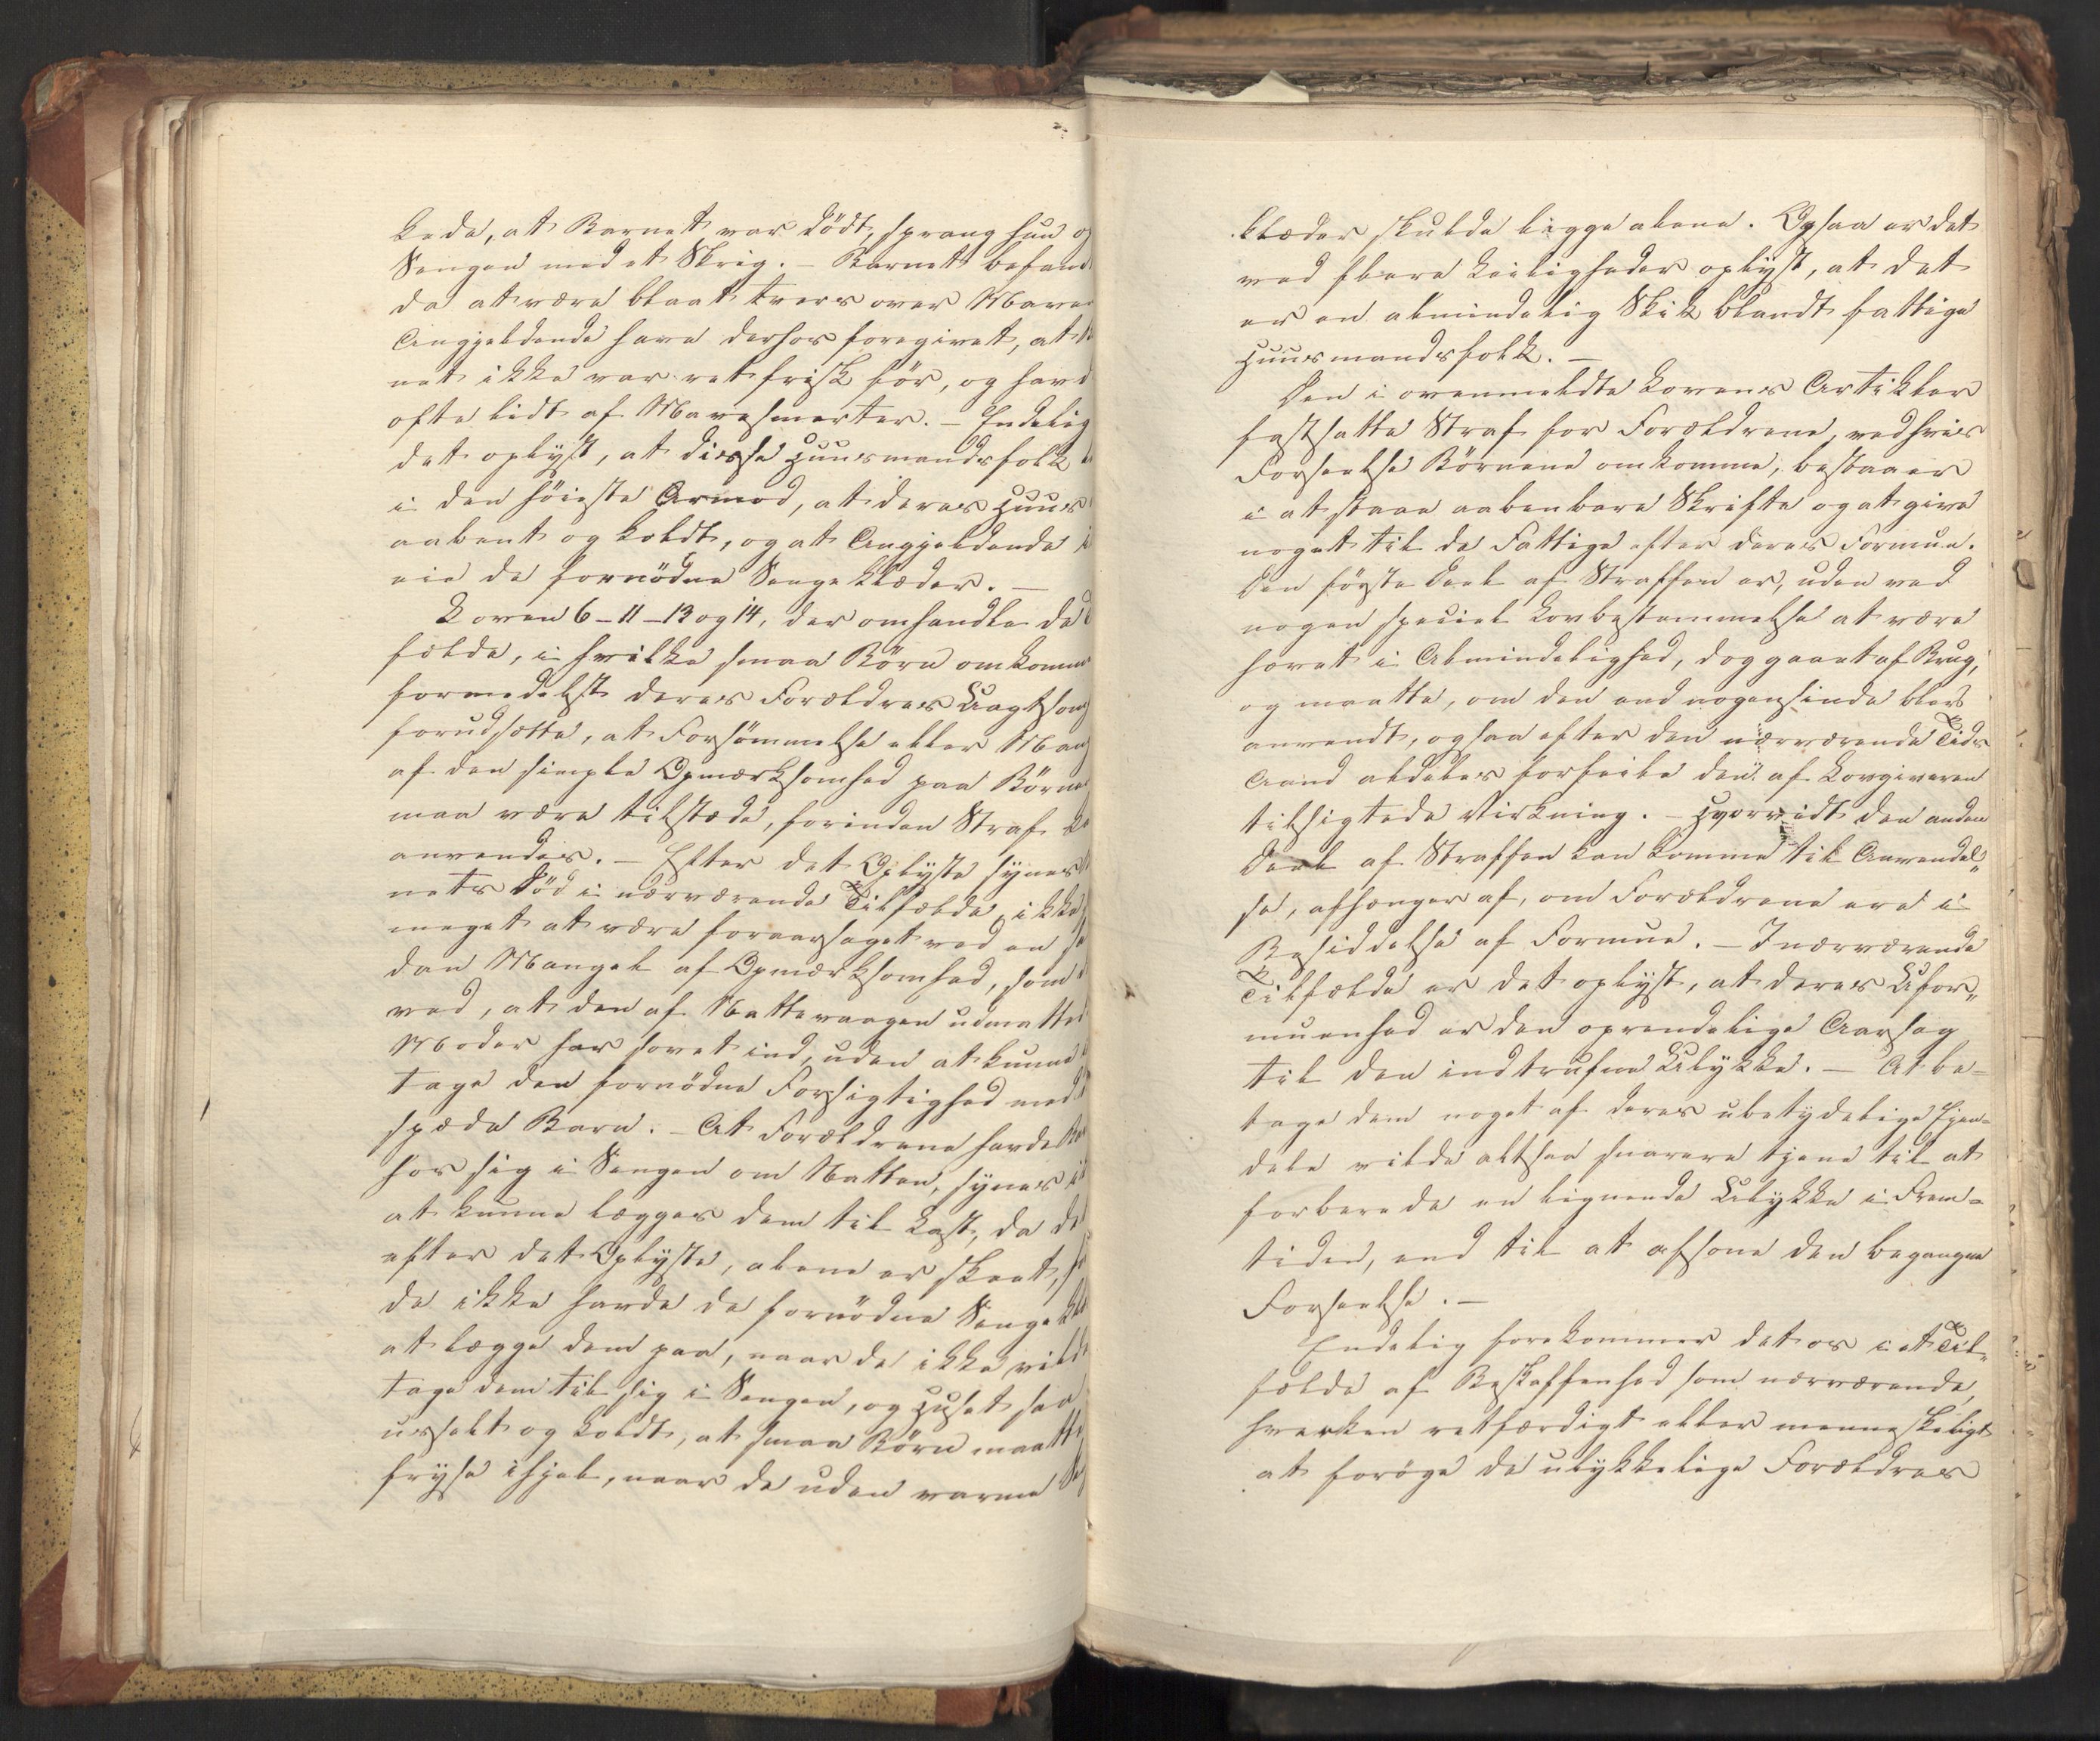 kede, at Barnet var dödt, sprang hun
Sengen med et Skrig. – Barnet befandt
da at være blaat tvers over Mave
Angjeldende have derhos foregivet, at
net ikke var ret frisk før, og havd
ofte lidt af Mavesmerter. – Endelig
det oplyst, at disse Huusmandsfolk
i den höieste Armod, at deres Huus
aabent og koldt, og at Angjeldende
eie de fornödne Sengeklæder. –
Loven 6–11–13 og 14, der omhandle de
fælde, i hvilke smaa Börn omkomme
formedelst deres Forældres Uagtsom
forudsætte, at Forsömmelse eller Man
af den simple Opmærksomhed paa Börne
maa være tilstæde, forinden Straf
anvendes. – Efter det Oplyste synes
nets Död i nærværende Tilfælde, ikke
meget at være foraarsaget ved en
dan Mangel af Opmærksomhed, som
ved, at den af Nattevaagen udmattede
Moder har sovet ind, uden at kunne
tage den fornödne Forsigtighed med
spæde Barn. – At Forældrene havde
hos sig i Sengen om Natten, synes
at kunne lægges dem til Last, da det
efter det Oplyste, alene er skeet,
de ikke havde de fornödne Senge
at lægge dem paa, naar de ikke vilde
tage dem til sig i Sengen, og Huset saa
usselt og koldt, at smaa Börn maatte
fryse ihjel, naar de uden varme
klæder skulde ligge alene. Ogsaa er det
ved flere Leiligheder oplyst, at det
er en almindelig Skik blandt fattige
Huusmandsfolk. –
Den i ovenmeldte Lovens Artikler
fastsatte Straf for Forældrene, ved hvis
Forseelse Börnene omkomme, bestaaer
i at staae aabenbare Skrifte og at give
noget til de Fattige efter deres Formue.
Den förste Deel af Straffen er, uden ved
nogen speciel Lovbestemmelse at være
hævet i Almindelighed, dog gaaet af Brug,
og maatte, om den end nogensinde blev
anvendt, ogsaa efter den nærværende Tids
Aand aldeles forfeile den af Lovgiveren
tilsigtede Virkning. – Hvorvidt den anden
Deel af Straffen kan komme til Anvendel„
se, afhænger af, om Forældrene ere i
Besiddelse af Formue. – I nærværende
Tilfælde er det oplyst, at deres Ufor„
muenhed er den oprendelige Aarsag
til den indtrufne Ulykke. – At be-
tage dem noget af deres ubetydelige Ejen-
dele vilde altsaa snarere tjene til at
forberede en lignende Ulykke i Frem-
tiden, end til at afsone den begangne
Forseelse. –
Endelig forekommer det os i et Til„
fælde af Beskaffenhed som nærværende,
hverken retfærdigt eller menneskeligt
at foröge de ulykkelige Forældres